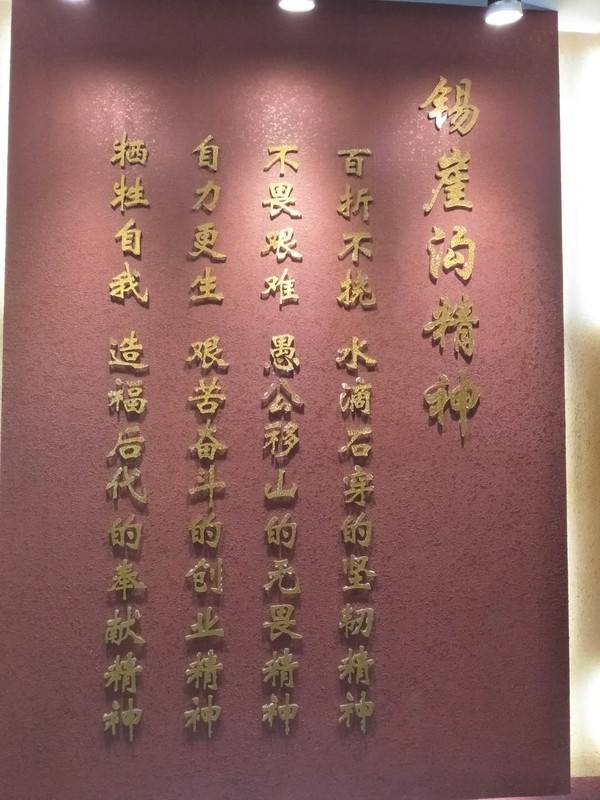 锡崖沟精神
百折不挠 水滴石穿的坚韧精神
不畏艰难 愚公移山的无畏精神
自力更生 艰苦奋斗的创业精神
牺牲自我 造福后代的奉献精神